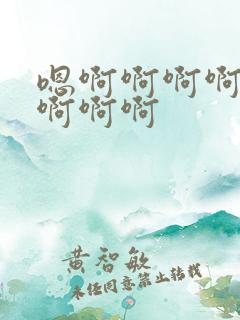 嗯啊啊啊啊
啊啊啊
黄智敏
未经同意禁止转载